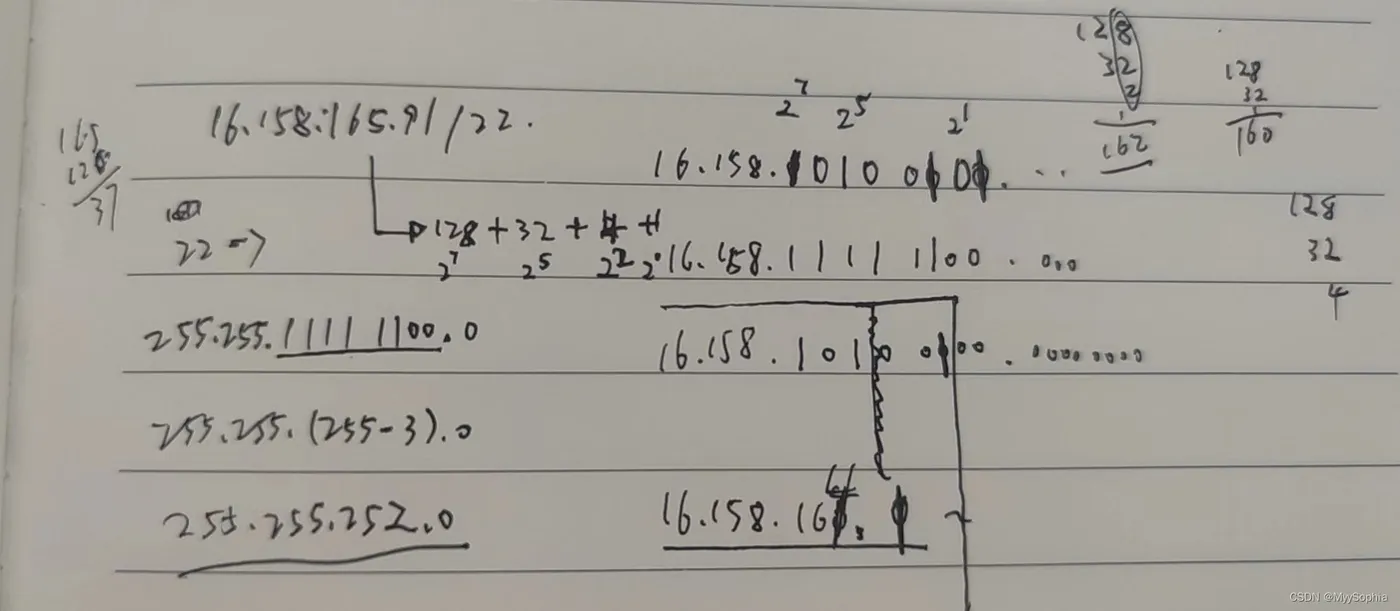 128
32
2
162
128
32
160
2^7 2^5 2^1
16.158.165.91/22.
165
128
37
16.158.1010 0101. ...
22 =>
128 + 32 + 4 +
2^7 2^5 2^2 2^0
16.158.11111100 . 000
128
32
4
255.255.11111100.0
16.158.1010 0100 . 00000000
255.255.(255-3).0
255.255.252.0
16.158.164.
CSDN @MyySophia